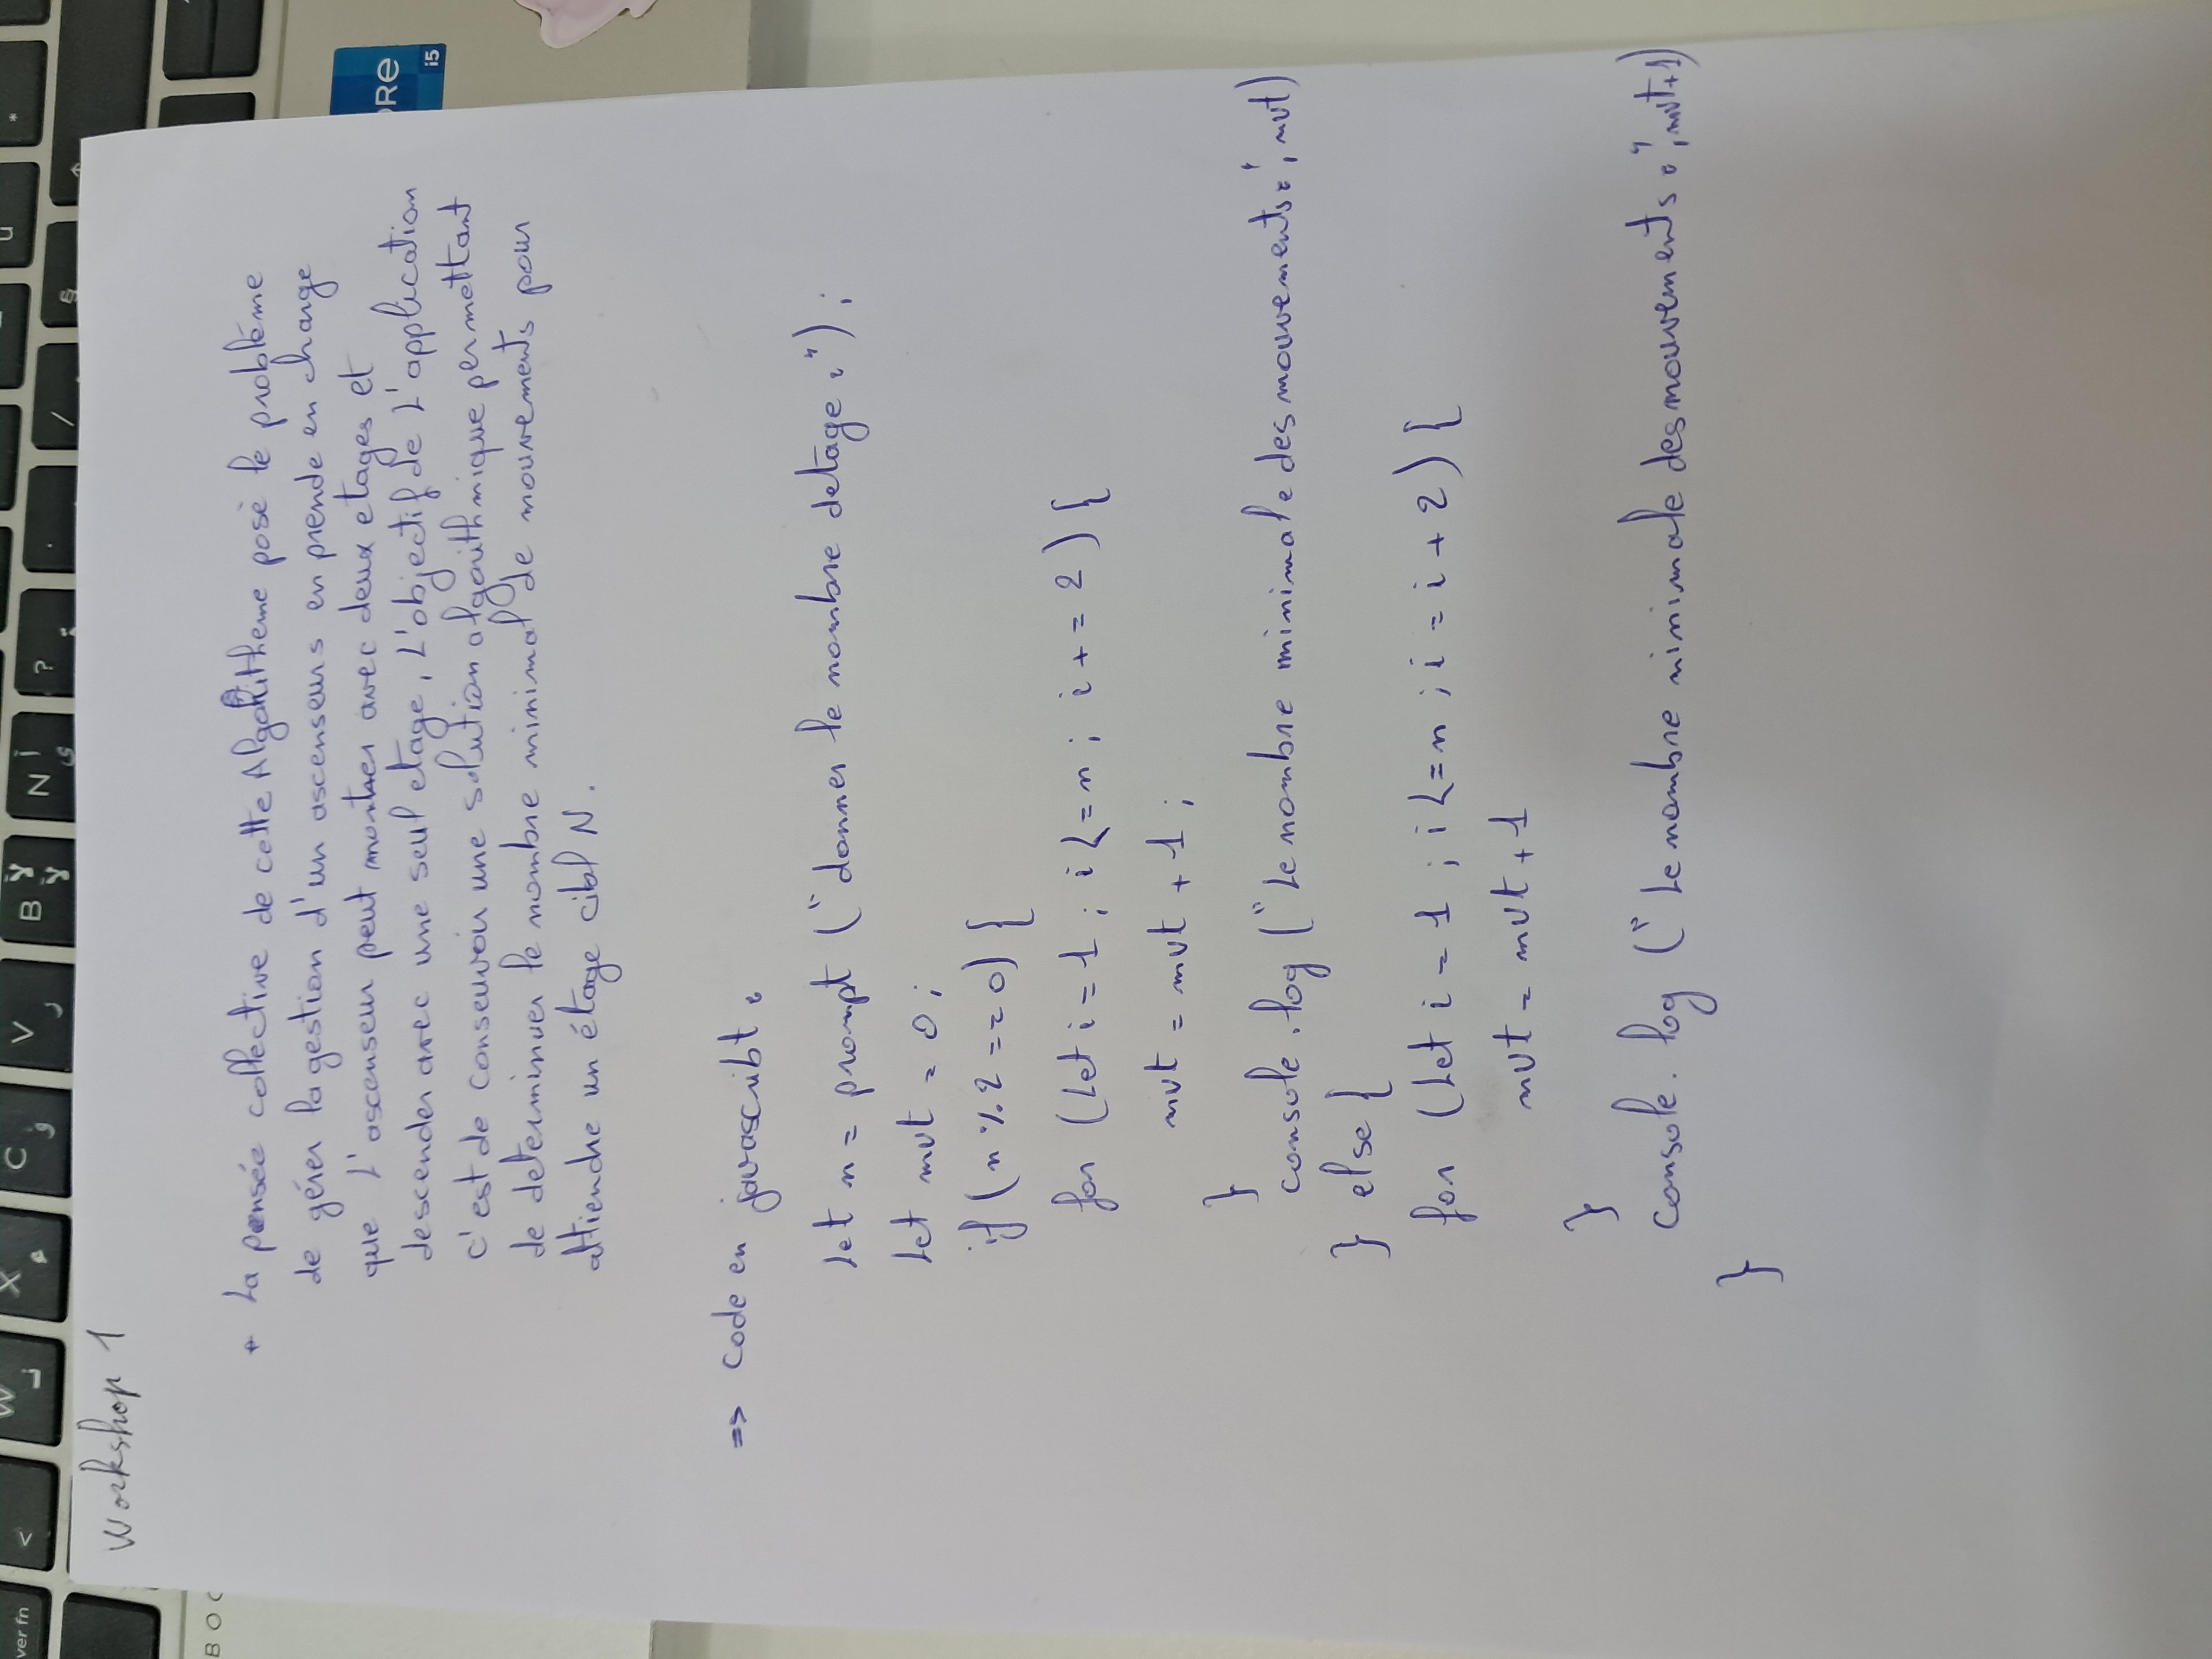 ver fn < W X C V B N ? . / §
لآ
لآ
BOO
Workshop 1
+ La pensée collective de cette Algoritheme posè le problème
de gérer la gestion d'un ascenseurs en prende en charge
que L'ascenseur peut monter avec deux etages et
descender avec une seul etage, L'objectif de L'application
c'est de conseuvoir une solution algorithmique permettant
de determinuer le nombre minimal de mouvements pour
attiendre un étage cibl N.
=> Code en javascribt :
Let n = prompt ("donner le nombre detage :");
Let mvt = 0;
if (n % 2 == 0) {
for (Let i = 1 ; i <= n ; i += 2) {
mvt = mvt + 1 ;
}
console.log ("Le nombre minimale des mouvements :", mvt)
} else {
for (Let i = 1 ; i <= n ; i = i + 2) {
mvt = mvt + 1
}
console.log ("Le nombre minimale des mouvements :", mvt+1)
}
ORe
i5